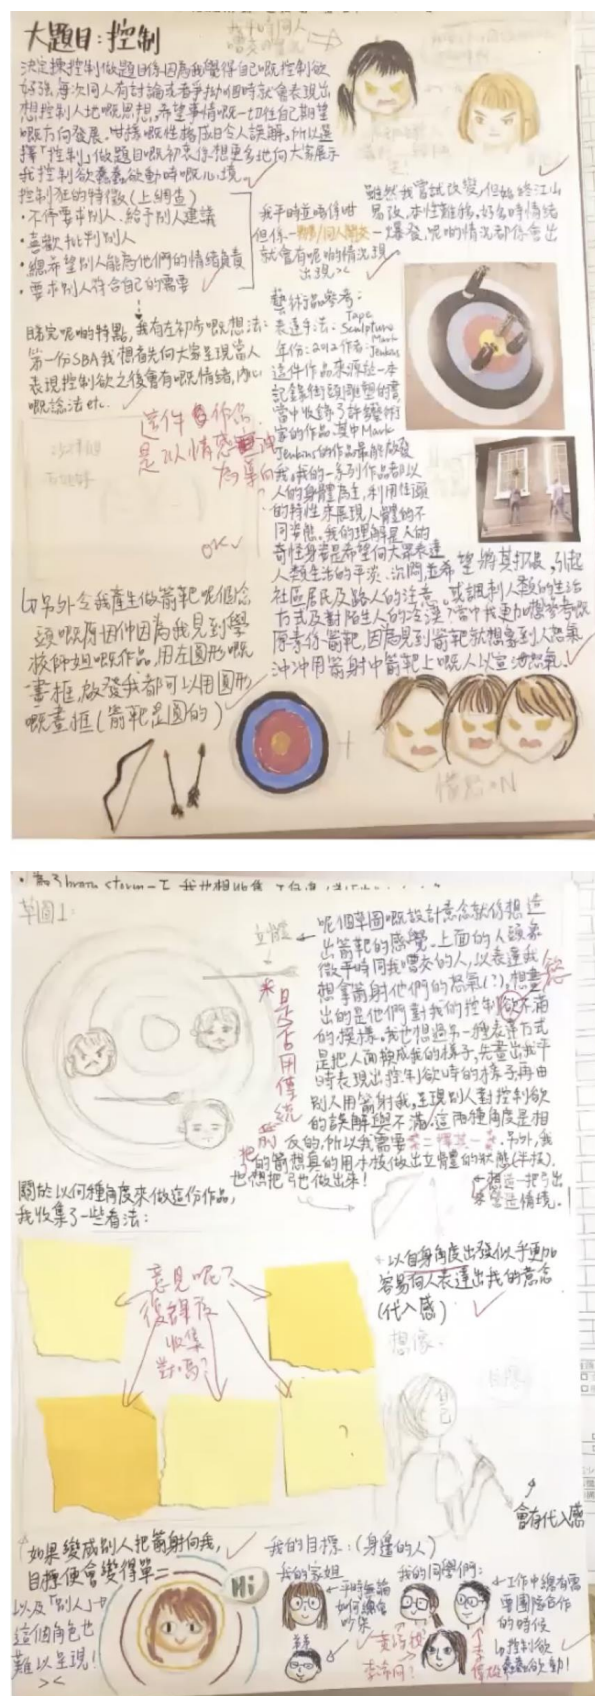 大題目:控制
決定揀控制做題目係因為我覺得自己嘅控制欲
好強,每次同人有討論或者爭拗個時就會表現出
想控制人地嘅思想,希望事情嘅一切性自己期望
嘅方向發展,咁樣嘅性格成日令人誤解,所以選
擇「控制」做題目嘅初衷係想更多地向大家展示
我控制欲蠢蠢欲動時嘅心境。
控制狂的特徵(上網查)
・不停要求別人、給予別人建議
・喜歡批判別人
・總希望別人能為他們的情緒負責
・要求別人符合自己的需要
我平時並唔係咁
但係一
就會有呢啲情況現
出現><
雖然我嘗試改變,但始終江山
易改,本性難移,好多時情緒
一爆發,呢啲情況都係會出
睇完呢啲特點,我有左初步嘅想法:
第一份SBA我想著先向大家呈現當人
表現控制欲之後會有嘅情緒,內心
嘅諗法etc.
這件作品
是以情感
為導向
?
OK✓
藝術品參考:
表達手法: Tape Sculpture
年份:2012 作者: Mark Jenkins
這件作品來源於一本
記錄街頭雕塑的書,
當中收錄了許多藝術
家的作品,其中Mark
Jenkins的作品最能啟發
我,我的一系列作品都以
人的身體為主,利用
的特性來展現人體的不
同姿態。我的理解是人的
奇怪身姿是希望向大眾表達
人類生活的平淡、沉悶,並希望將其打破,引起
社區居民及路人的注意,或諷刺人類的生活
方式及對陌生人的冷漠?當中我更加想參考嘅
原素係箭靶,因為見到箭靶就想像到人怒氣
沖沖用箭射中箭靶上嘅人以宣洩怒氣。
↳另外令我產生做箭靶呢個念
頭嘅原因仲因為我見到學
校師姐嘅作品,用左圓形嘅
畫框,啟發我都可以用圓形
嘅畫框(箭靶是圓的)
+
憤怒
草圖1:
立體
呢個草圖嘅設計意念就係想造
出箭靶的感覺。上面的人頭象
徵平時同我嘈交的人,以表達我
想拿箭射他們的怒氣(?),想畫
出的是他們對我的控制欲不滿
慾
的模樣。我也想過另一種表達方式
是把人面換成我的樣子,先畫出我平
時表現出控制欲時的樣子,再由
別人用箭射我,呈現別人對控制欲
的誤解與不滿。這兩種角度是相
反的,所以我需要二擇其一。另外,我
的箭想真的用木板做出立體的狀態(半立體),
也想把弓也做出來!
是否用傳統
箭靶
想造一把弓出
來營造情境。
關於以何種角度來做這份作品,
我收集了一些看法:
意見呢?
後餘段
收集
對嗎?
?
以自身角度出發似乎更加
容易向人表達出我的意念
(代入感)
想像:
自己
目標
會有代入感
如果變成別人把箭射向我,
目標便會變得單一
以及「別人」
這個角色也
難以呈現!
><
Hi
我的目標:(身邊的人)
我的家姐
弟弟
平時無論
如何總會
吵架
我的同學們:
工作中總有需
要團隊合作
的時候
↳控制欲
蠢蠢欲動!